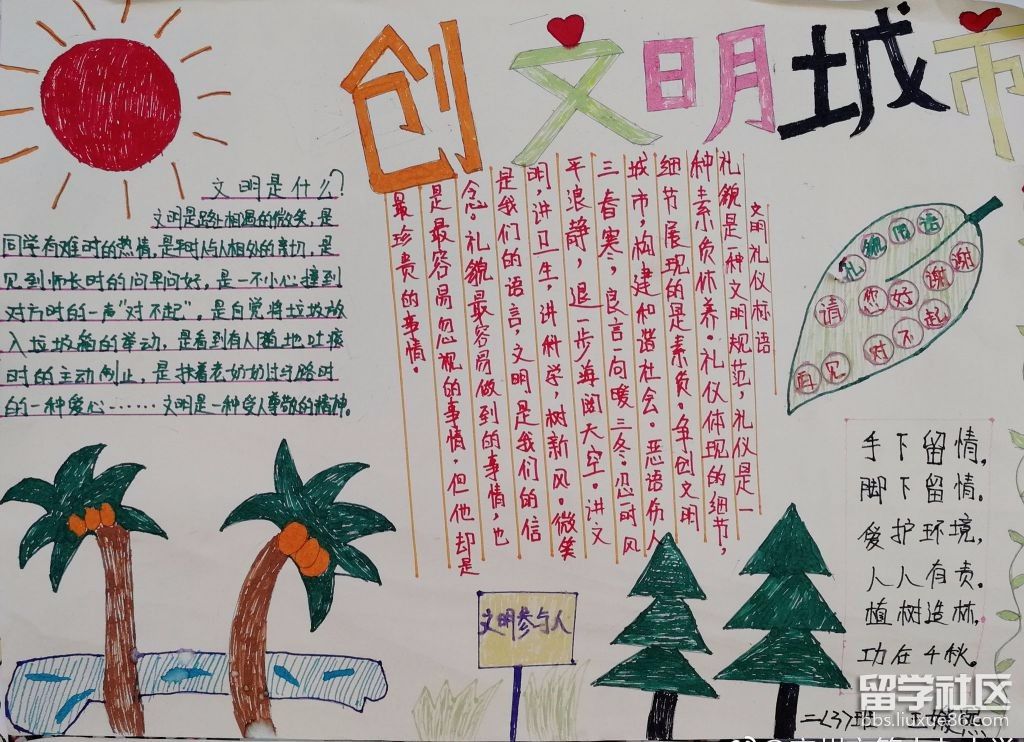 创文明城市
文明是什么?
文明是路上相遇的微笑,是
同学有难时的热情,是平时与人相处的亲切,是
见到师长时的问早问好,是一不小心撞到
对方时的一声“对不起”,是自觉将垃圾放
入垃圾箱的举动,是看到有人随地吐痰
时的主动制止,是扶着老奶奶过马路时
的一种爱心……文明是一种受人尊敬的精神。
文明礼仪标语
礼貌是一种文明规范,礼仪是一
种素质休养。礼仪体现的细节,
细节展现的是素质。争创文明
城市,构建和谐社会。恶语伤人
三春寒,良言一向暖三冬。忍一时风
平浪静,退一步海阔天空。讲文
明,讲卫生,讲科学,树新风。微笑
是我们的语言,文明是我们的信
念。礼貌最容易做到的事情,也
是最容易忽视的事情,但他却是
最珍贵的事情。
礼貌用语
请 您好 谢谢
再见 对不起
手下留情,
脚下留情。
爱护环境,
人人有责。
植树造林,
功在千秋。
文明参与人
二(3)班
留学社区
bbs.liuxue86.com